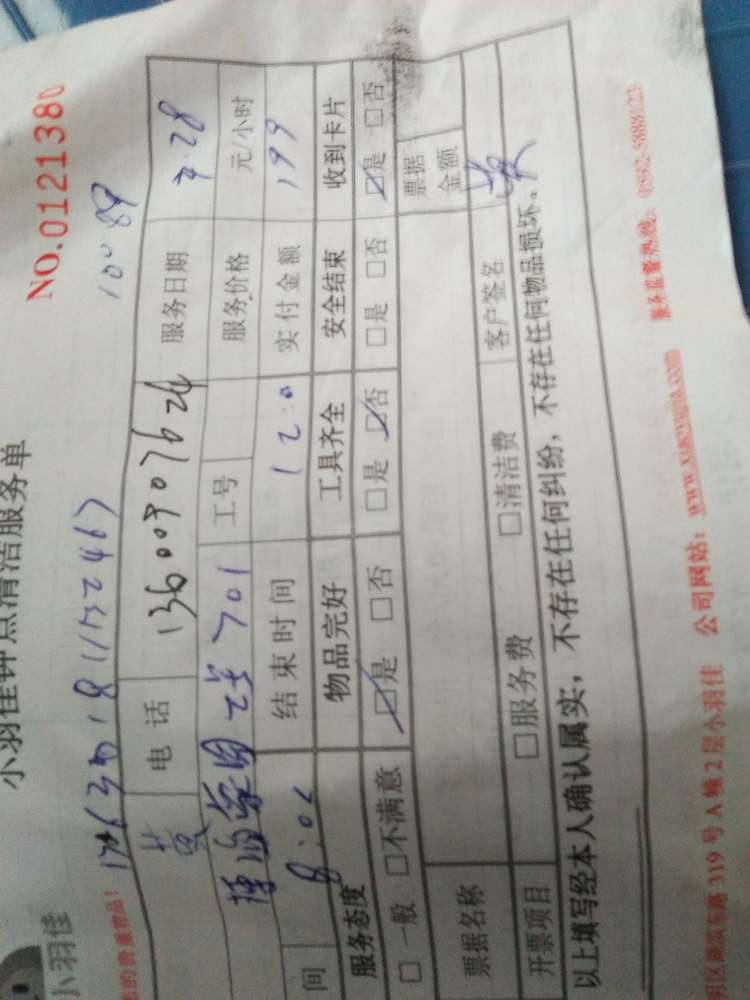 小羽佳
小羽佳钟点清洁服务单
NO.0121380
您的贵重物品!
10089
黄 电话 13600907624 服务日期 4.28
701 工号 服务价格 元/小时
间 8:02 结束时间 12:0 实付金额 199
服务态度 物品完好 工具齐全 安全结束 收到卡片
□一般 □不满意 ☑是 □否 □是 ☑否 □是 □否 ☑是 □否
票据名称 票据金额
开票项目 □服务费 □清洁费 客户签名 黄
以上填写经本人确认属实,不存在任何纠纷,不存在任何物品损坏。
明区湖滨东路 319 号 A 幢 2 层小羽佳 公司网站: www.xiaoyujia.com 服务监督热线: 0592-5888123